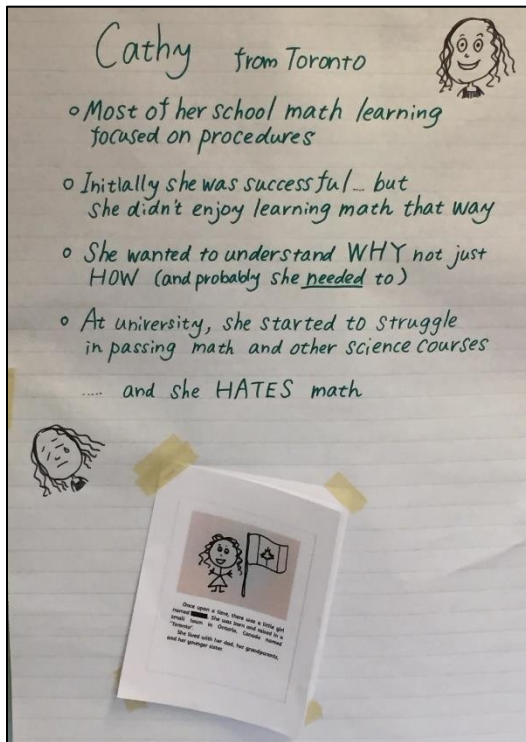 Cathy from Toronto
Most of her school math learning
focused on procedures
Initially she was successful... but
she didn't enjoy learning math that way
She wanted to understand WHY not just
HOW (and probably she needed to)
At university, she started to struggle
in passing math and other science courses
..... and she HATES math
Once upon a time, there was a little girl
named She was born and raised in a
small town in Ontario, Canada named
"Toronto"
She lived with her dad, her grandparents,
and her younger sister